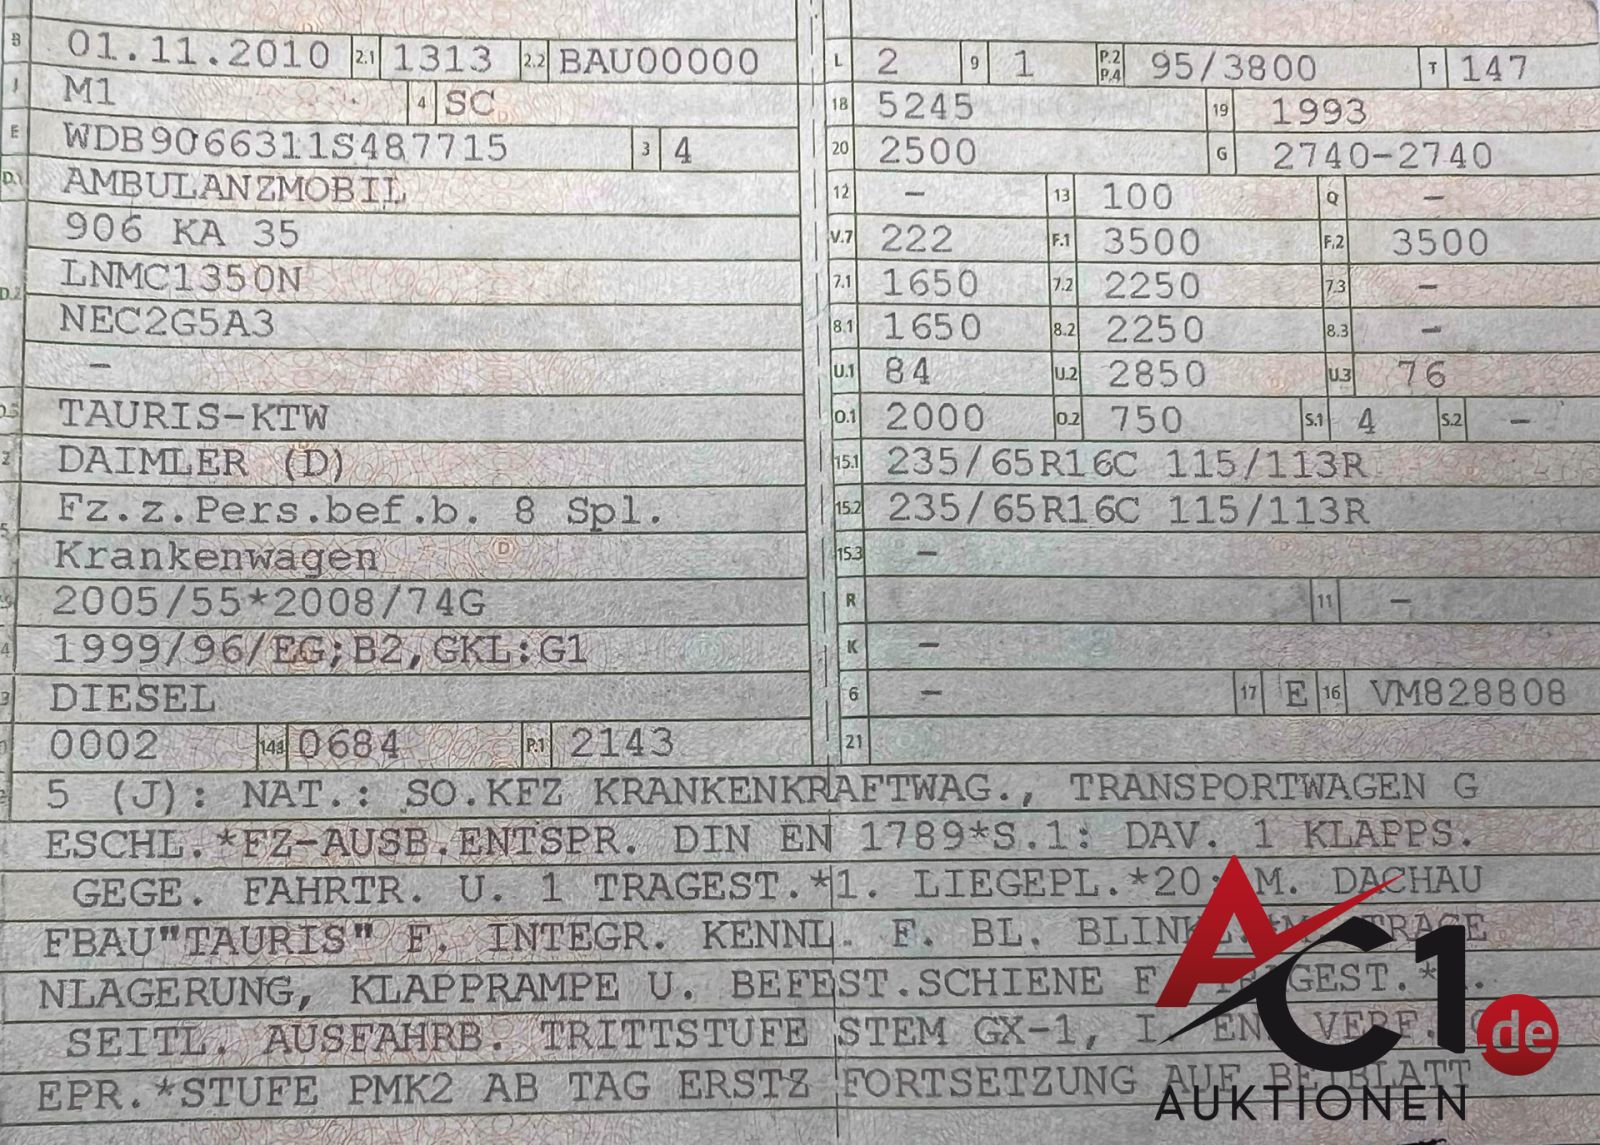 B 01.11.2010 2.1 1313 2.2 BAU00000
J M1 4 SC
E WDB9066311S487715 3 4
D.1 AMBULANZMOBIL
906 KA 35
LNMC1350N
D.2 NEC2G5A3
–
TAURIS-KTW
DAIMLER (D)
5 Fz.z.Pers.bef.b. 8 Spl.
Krankenwagen
2005/55*2008/74G
1999/96/EG;B2,GKL:G1
DIESEL
0002 14.1 0684 P.1 2143
L 2 9 1 P.2 P.4 95/3800 T 147
18 5245 19 1993
20 2500 G 2740-2740
12 – 13 100 Q –
V.7 222 F.1 3500 F.2 3500
7.1 1650 7.2 2250 7.3 –
8.1 1650 8.2 2250 8.3 –
U.1 84 U.2 2850 U.3 76
O.1 2000 O.2 750 S.1 4 S.2 –
15.1 235/65R16C 115/113R
15.2 235/65R16C 115/113R
15.3 –
R 11 –
K –
6 – 17 E 16 VM828808
21
5 (J): NAT.: SO.KFZ KRANKENKRAFTWAG., TRANSPORTWAGEN G
ESCHL.*FZ-AUSB.ENTSPR. DIN EN 1789*S.1: DAV. 1 KLAPPS.
GEGE. FAHRTR. U. 1 TRAGEST.*1. LIEGEPL.*20: M. DACHAU
FBAU"TAURIS" F. INTEGR. KENNL. F. BL.
NLAGERUNG, KLAPPRAMPE U. BEFEST.SCHIENE
SEITL. AUSFAHRB. TRITTSTUFE STEM GX-1,
EPR.*STUFE PMK2 AB TAG ERSTZ FORTSETZUNG AUF BEIBLATT
AC1.de
AUKTIONEN